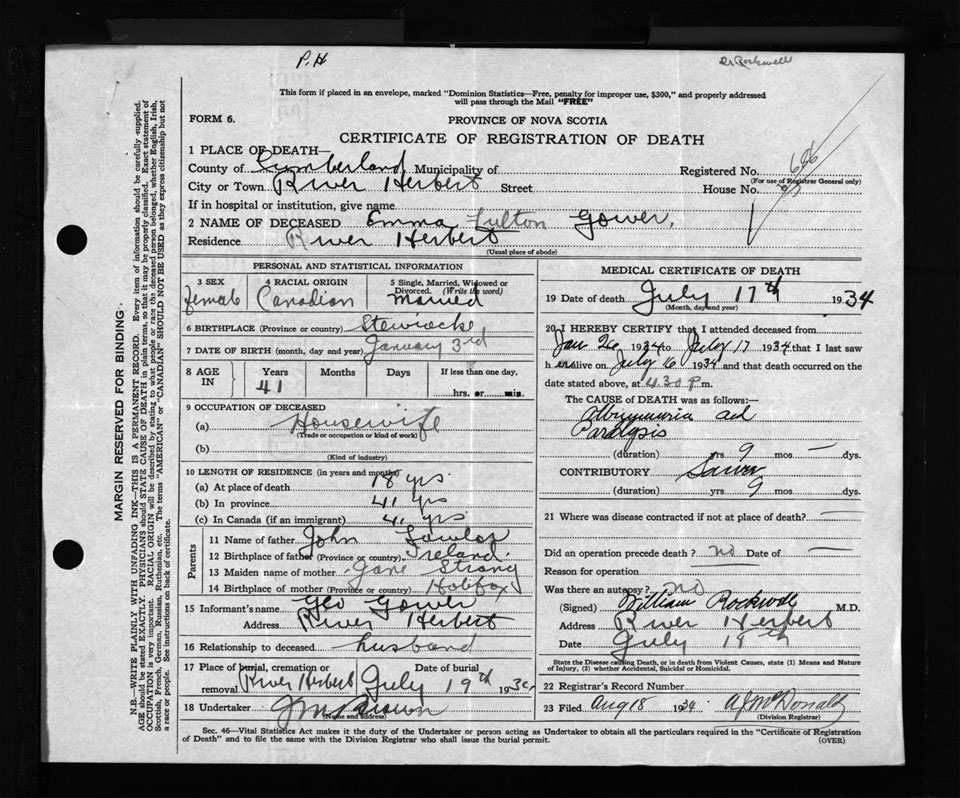 P.H
Dr Rockwell
This form if placed in an envelope, marked "Dominion Statistics—Free, penalty for improper use, $300," and properly addressed
will pass through the Mail "FREE"
FORM 6.
PROVINCE OF NOVA SCOTIA
CERTIFICATE OF REGISTRATION OF DEATH
1 PLACE OF DEATH—
County of Cumberland Municipality of Registered No. 686
(For use of Registrar General only)
City or Town River Herbert Street House No.
If in hospital or institution, give name
2 NAME OF DECEASED Emma Fulton Gower,
Residence River Herbert
(Usual place of abode)
PERSONAL AND STATISTICAL INFORMATION
3 SEX female
4 RACIAL ORIGIN Canadian
5 Single, Married, Widowed or Divorced. (Write the word) Married
6 BIRTHPLACE (Province or country) Stewiacke
7 DATE OF BIRTH (month, day and year) January 3rd
8 AGE IN Years Months Days If less than one day,
41 hrs. or min.
9 OCCUPATION OF DECEASED
(a) Housewife
(Trade or occupation or kind of work)
(b)
(Kind of industry)
10 LENGTH OF RESIDENCE (in years and months)
(a) At place of death 18 yrs
(b) In province 41 yrs
(c) In Canada (if an immigrant) 41 yrs
Parents
11 Name of father John
12 Birthplace of father (Province or country) Ireland.
13 Maiden name of mother Jane Strong
14 Birthplace of mother (Province or country) Halifax
15 Informant's name Geo Gower
Address River Herbert
16 Relationship to deceased husband
17 Place of burial, cremation or removal Date of burial
River Herbert July 19th 1934
18 Undertaker J M Brown
(Name and address)
MEDICAL CERTIFICATE OF DEATH
19 Date of death July 17th 1934
(Month, day and year)
20 I HEREBY CERTIFY that I attended deceased from
Jan 26 1934 to July 17 1934 that I last saw
h er alive on July 16 1934 and that death occurred on the
date stated above, at 4.30 P m.
The CAUSE of DEATH was as follows:—
Paralysis
(duration) yrs. 9 mos — dys.
CONTRIBUTORY
(duration) yrs. 9 mos. dys.
21 Where was disease contracted if not at place of death? —
Did an operation precede death? no Date of —
Reason for operation
Was there an autopsy? no
(Signed) William Rockwell M.D.
Address River Herbert
Date July 18th
State the Disease causing Death, or in death from Violent Causes, state (1) Means and Nature
of Injury, (2) whether Accidental, Suicidal or Homicidal.
22 Registrar's Record Number
23 Filed Aug 18 1934 A J McDonald
(Division Registrar)
Sec. 46—Vital Statistics Act makes it the duty of the Undertaker or person acting as Undertaker to obtain all the particulars required in the "Certificate of Registration
of Death" and to file the same with the Division Registrar who shall issue the burial permit.
(OVER)
MARGIN RESERVED FOR BINDING.
N.B.—WRITE PLAINLY WITH UNFADING INK—THIS IS A PERMANENT RECORD. Every item of information should be carefully supplied.
AGE should be stated EXACTLY. PHYSICIANS should STATE CAUSE OF DEATH in plain terms, so that it may be properly classified. Exact statement of
OCCUPATION is very important. RACIAL ORIGIN will be described by stating to what people or race the deceased person belonged, whether English, Irish,
Scottish, French, German, Russian, Ruthenian, etc. The terms "AMERICAN" or "CANADIAN" SHOULD NOT BE USED as they express citizenship but not
a race or people. See instructions on back of certificate.